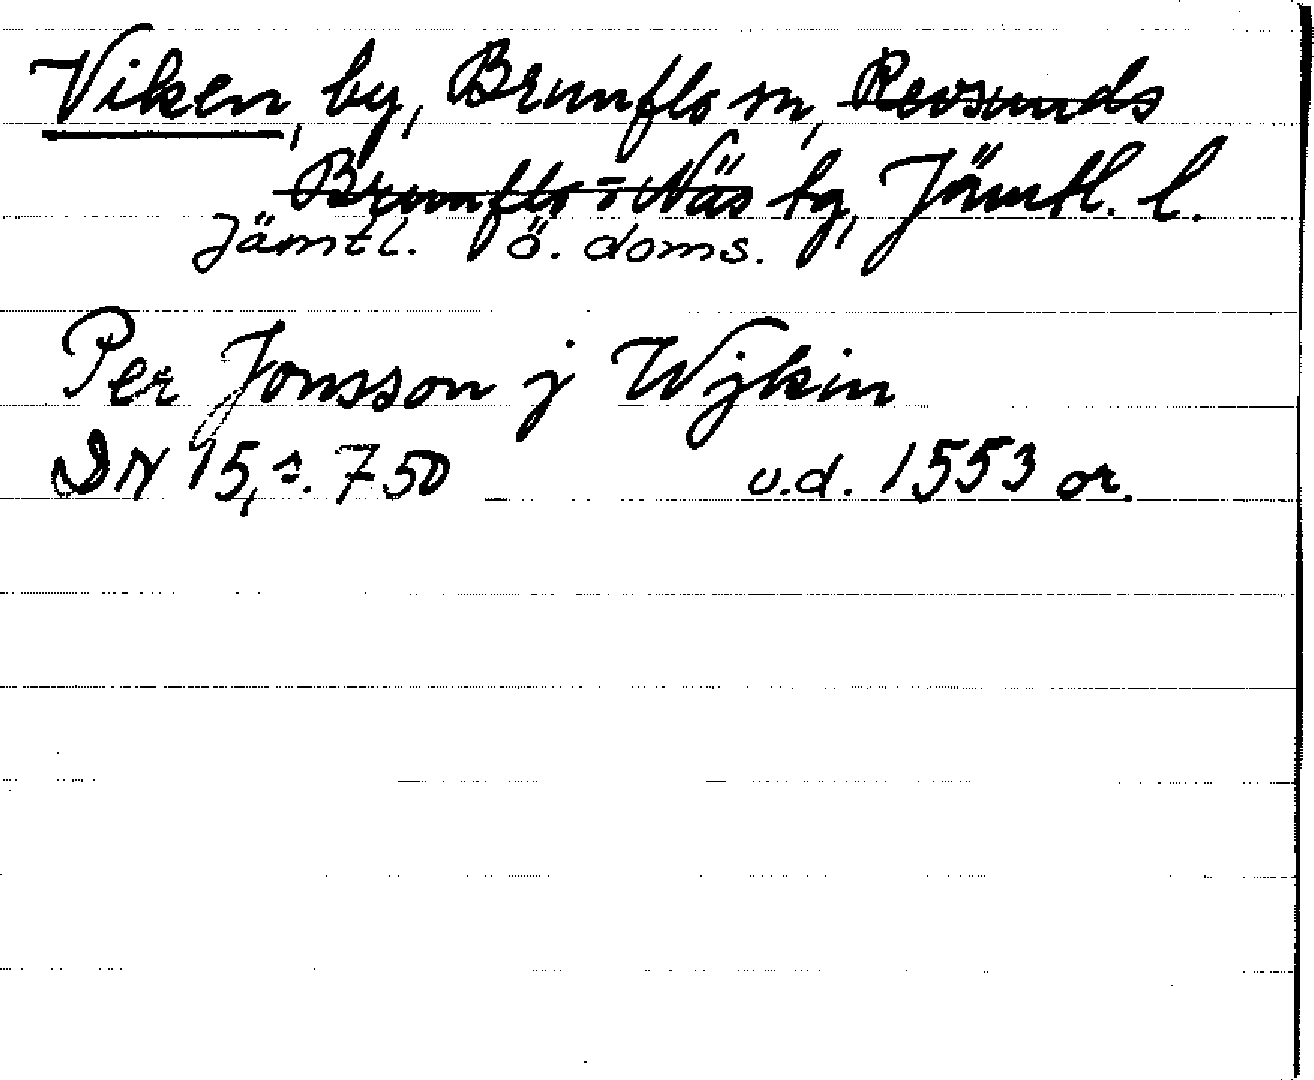 Viken, by, Brunflo sn, Revsunds
Brunflo o Näs tg, Jämtl. l.
Jämtl. ö. doms.
Per Jonsson j Wijkin
DN 15, s. 750 u.d. 1553 or.